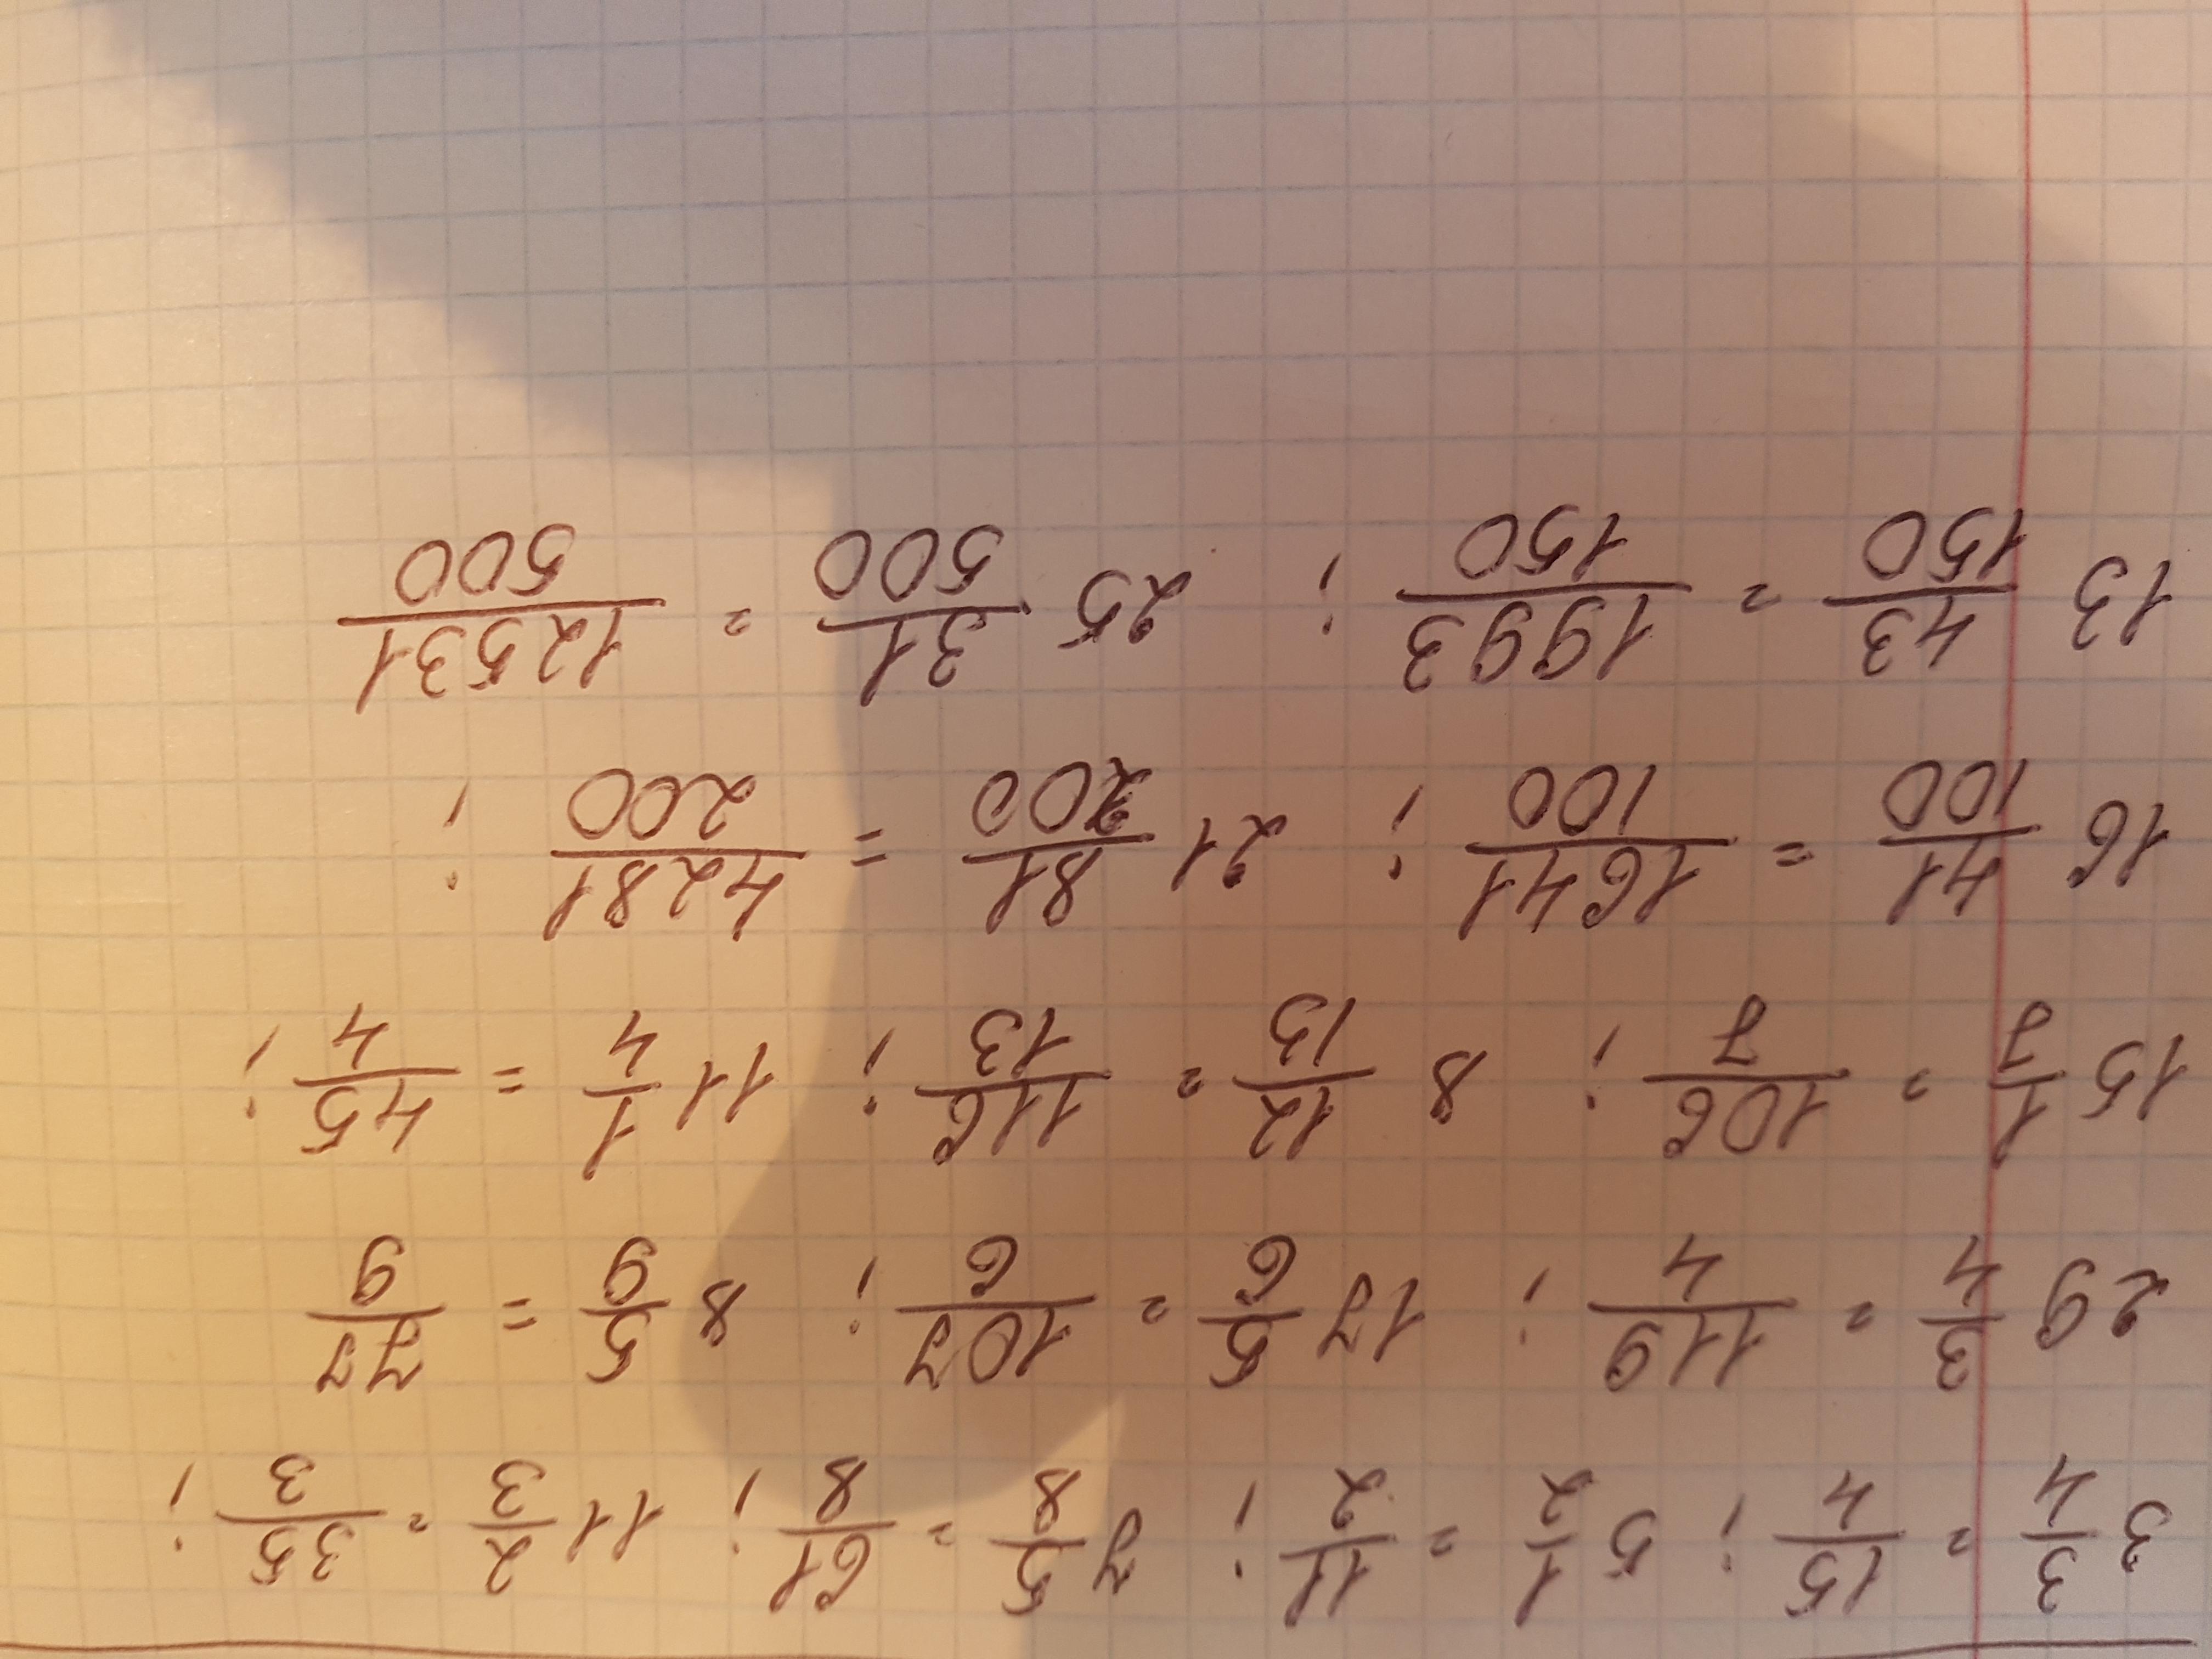 3 3/4 = 15/4; 5 1/2 = 11/2; 7 5/8 = 61/8; 11 2/3 = 35/3;
29 3/4 = 119/4; 17 5/6 = 107/6; 8 5/9 = 77/9
15 1/7 = 106/7; 8 12/13 = 116/13; 11 1/4 = 45/4;
16 41/100 = 1641/100; 21 81/200 = 4281/200;
13 43/150 = 1993/150; 25 31/500 = 12531/500